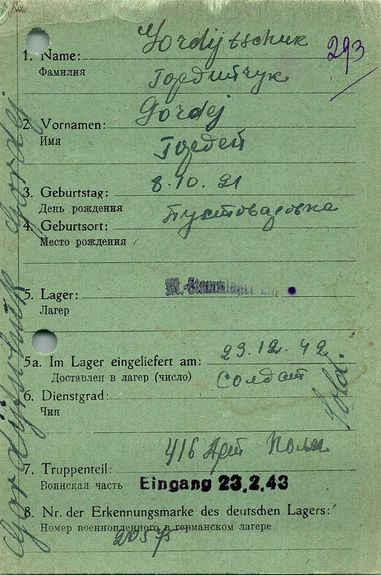 Gordijtschuk
293
1. Name:
Фамилия
Гордийчук
Gordej
2. Vornamen:
Имя
Гордей
3. Geburtstag: 8.10.21
День рождения
Пустоваровка
4. Geburtsort:
Место рождения
5. Lager: M.-Stammlager
Лагер
5a. Im Lager eingeliefert am: 23.12.42
Доставлен в лагер (число)
солдат
6. Dienstgrad:
Чин
Sold.
416 Арт Полк
7. Truppenteil:
Воинская часть
Eingang 23.2.43
8. Nr. der Erkennungsmarke des deutschen Lagers:
Номер военнопленного в германском лагере
Gordijtschuk Gordej